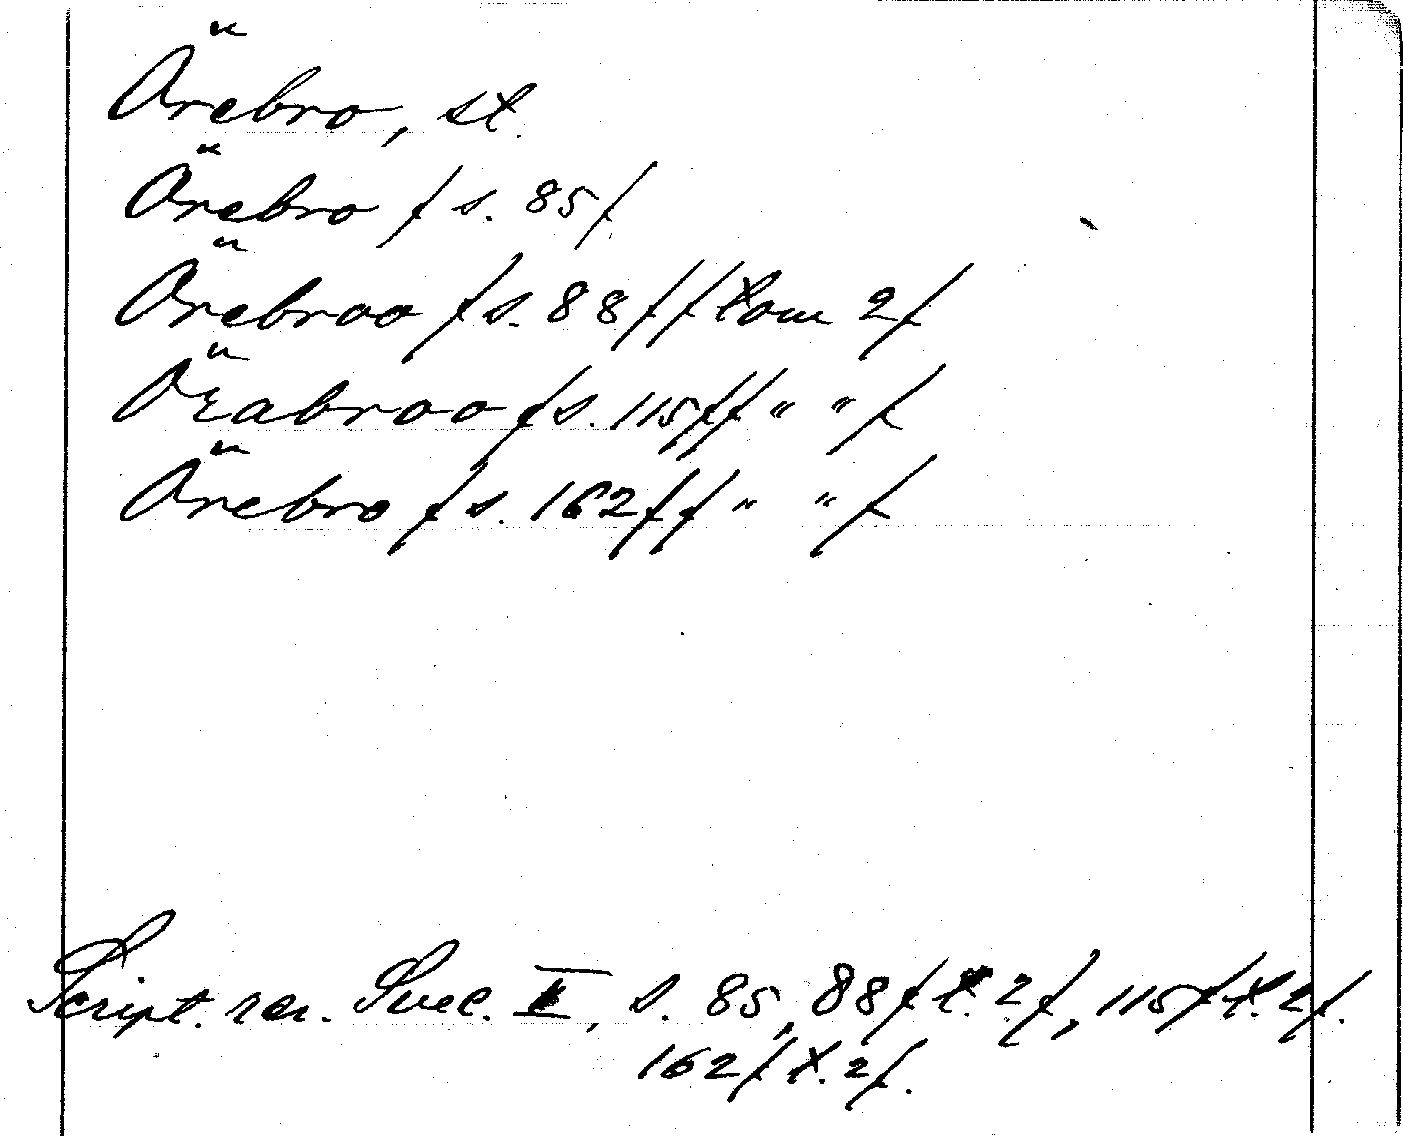 Örebro, st.
Örebro / s. 85/
Örebroo / s. 88 / / Tom 2 /
Örabroo / s. 115 / / " " /
Örebro / s. 162 / / " " /
Script. rer. Svec. II, s. 85, 88 / t. 2 /, 115 / t. 2 /.
162 / t. 2 /.